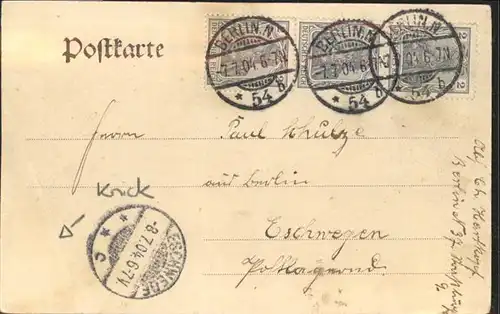 Postkarte
BERLIN.N.
7.7.04.6-7N.
* 54 b
BERLIN.N.
7.7.04.6-7N.
* 54 b
BERLIN.N.
04.6-7N.
* 54 b
2
2
Herrn
Paul Schulze
aus Berlin
Eschwegen
Postlagernd.
Krick
ESCHWEGE
-8.7.04.6-7V.
* * c
Abs. Ch.
Berlin